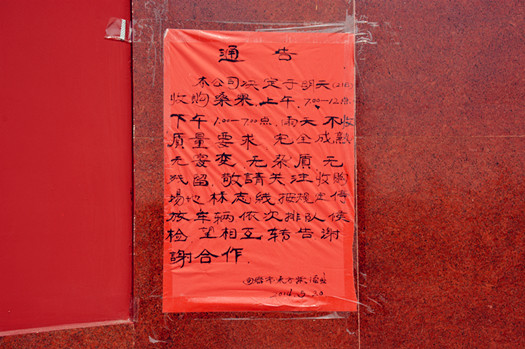 通告
本公司决定于明天
收购桑果.上午.7:00—12点.
下午1:00—7:00点.雨天不收
质量要求 完全成熟
无变 无杂质无
残留.敬請关注收购
場地林志线按规定停
放车辆依次排队候
检.望相互转告谢
謝合作.